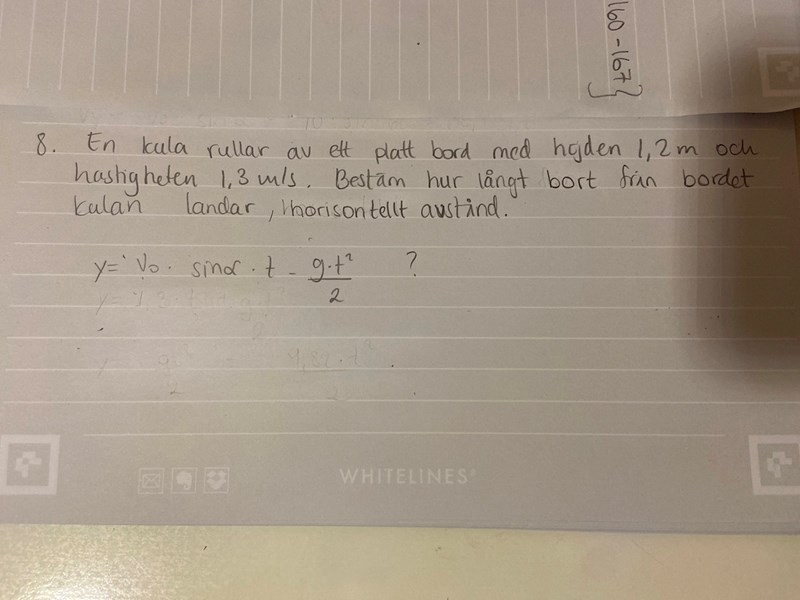 160-167}
8. En kula rullar av ett platt bord med höjden 1,2 m och
hastigheten 1,3 m/s. Bestäm hur långt bort från bordet
kulan landar, horisontellt avstånd.
y = V₀ · sinα · t - g·t²/2 ?
WHITELINES®